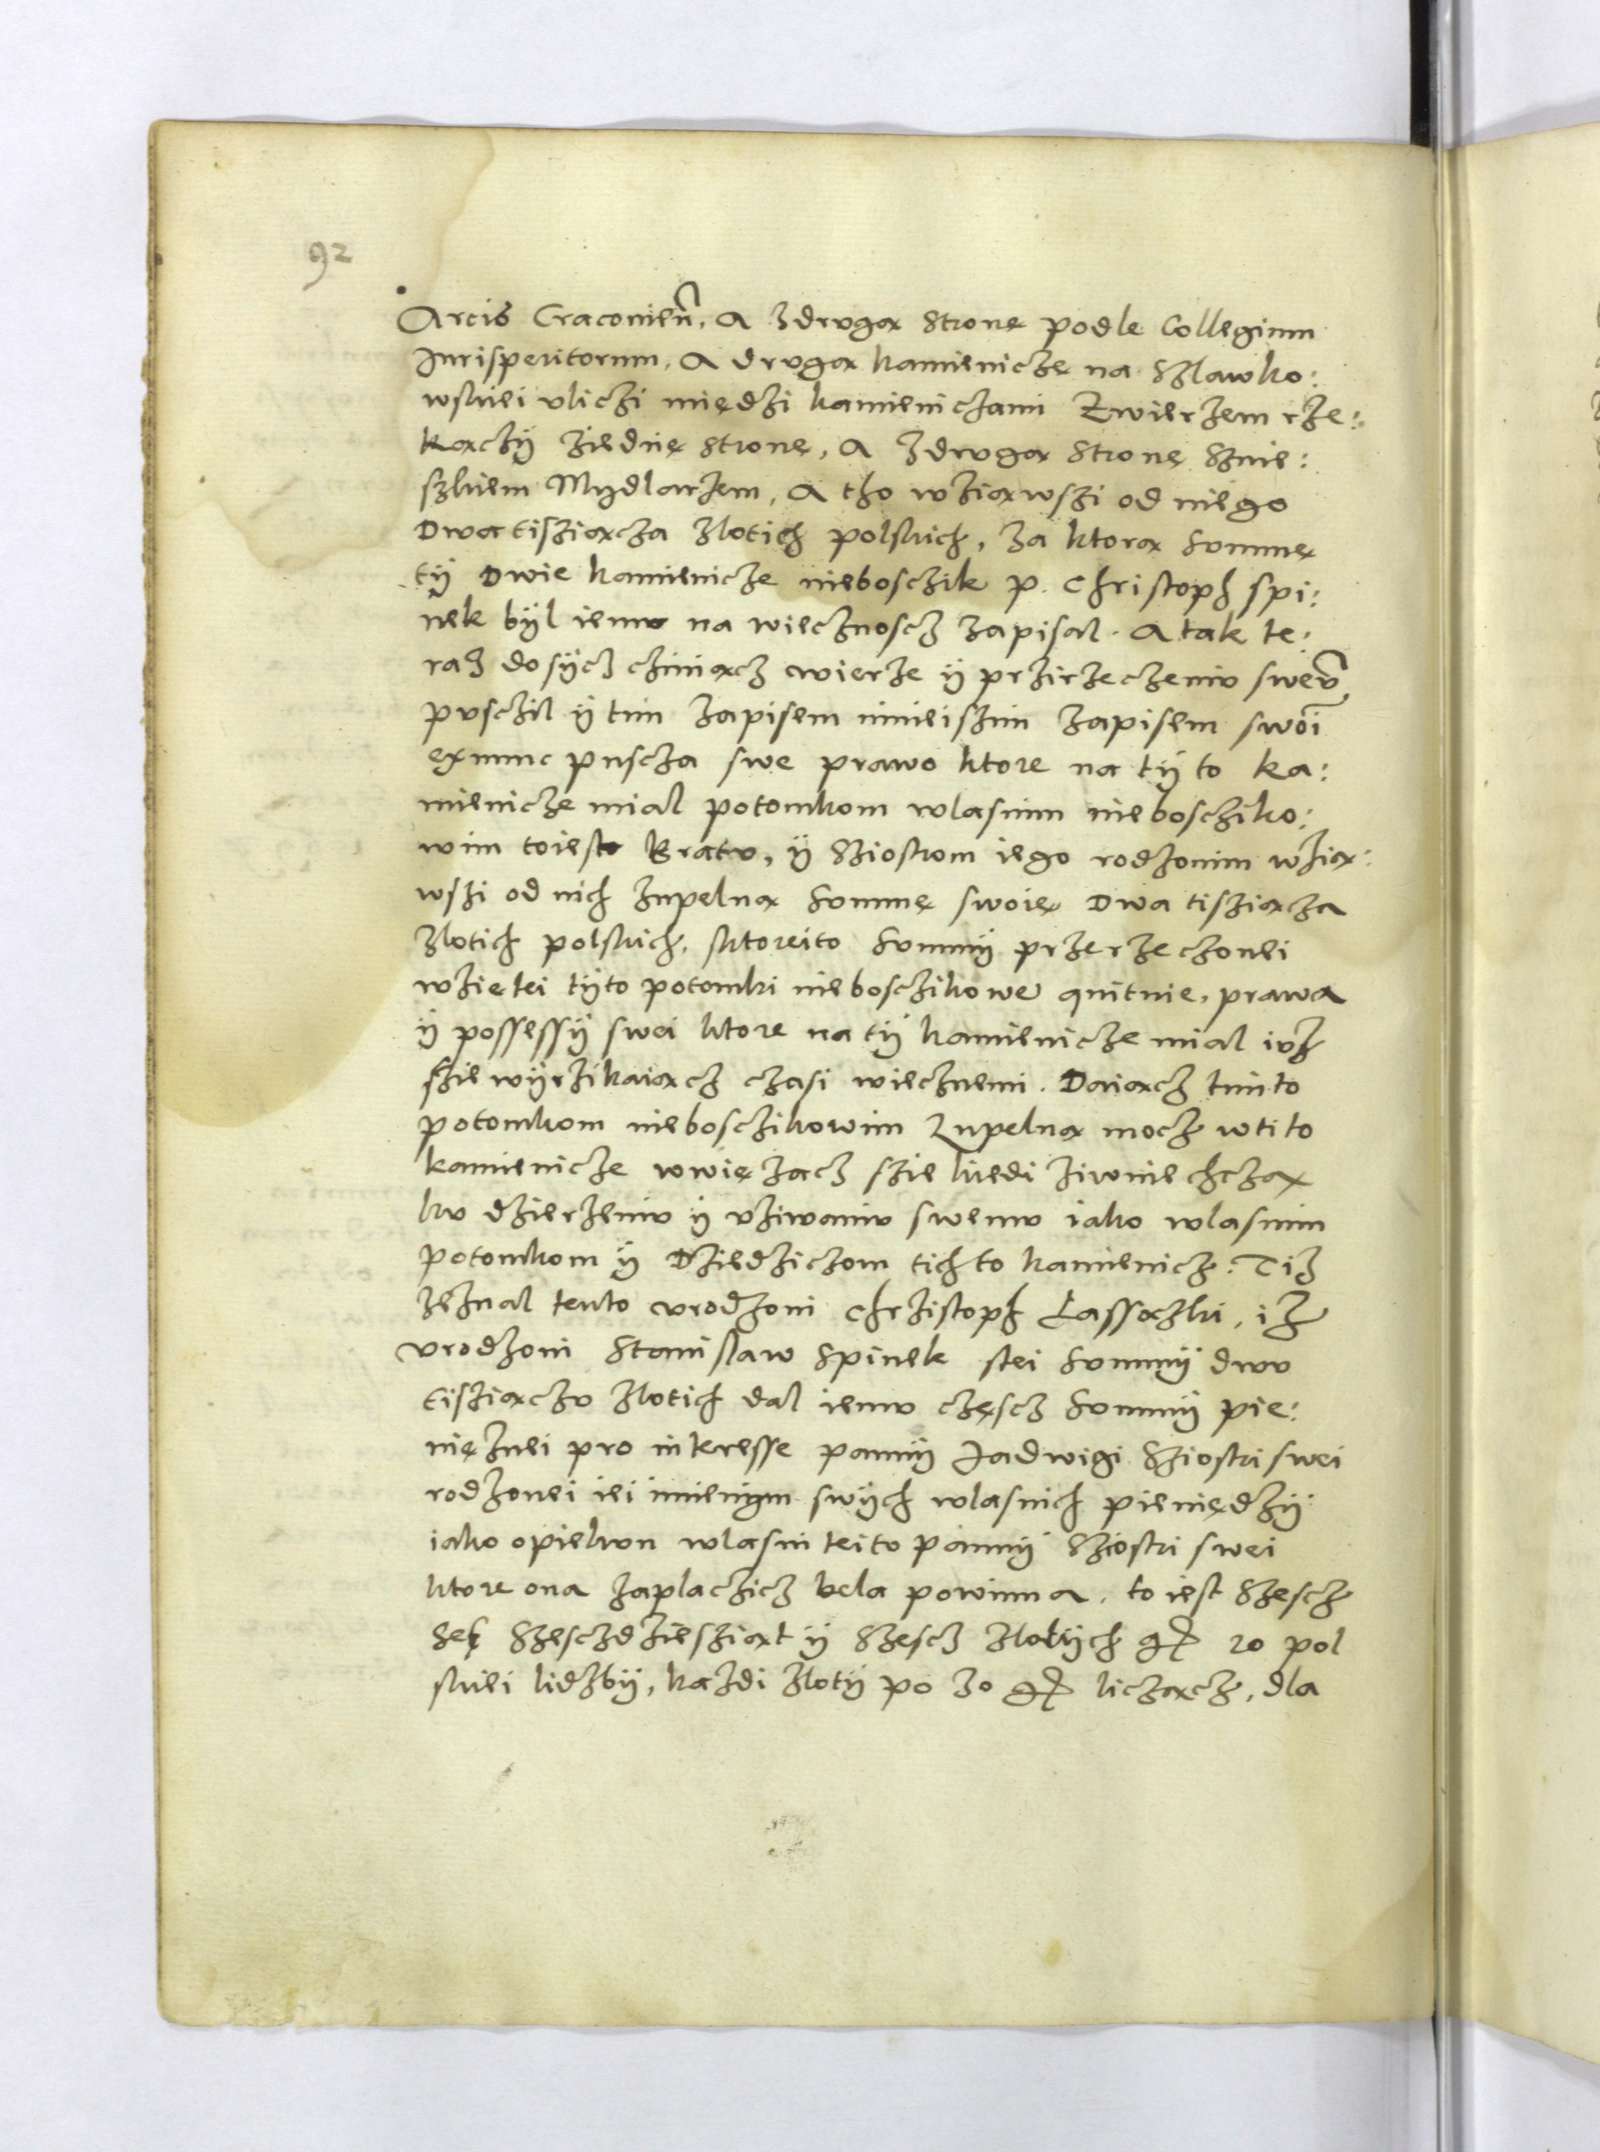 92
Arcis Cracovien̄, A zdrugą Stronę podle Collegium
Jurisperitorum, A drugą kamieniczę na Szlawko:
wskiei uliczi międzi kamieniczami Zwierzem rze:
kączÿ ziednę Stronę, A zdrugą Stronę Sznie:
szkiem Mydlarzem, A tho wziąwszi od niego
Dwa tisziącza zlotich polskich, za ktorą Summę
tÿ Dwie kamienicze nieboszczik p. Christoph spi:
nek bÿl iemu na wiecznoscz zapisal. A tak te:
raz dosÿcz cziniącz wierze ÿ przirzeczeniu sweu̅
pusczil ÿ tim zapisem ninieiszim zapisem swoi̅
exnunc puscza swe prawo ktore na tÿ to ka:
mienicze mial potomkom wlasnim nieboszcziko:
wim toiest Bratu, ÿ Sziostrom iego rodzonim wzią:
wszi od nich zupelną Summę swoię Dwa tisziącza
zlotich polskich, ktoreito Summÿ przerzeczonei
wziętei tÿto potomki nieboszczikowe quituie, prawa
ÿ possessÿ swei ktore na tÿ kamienicze mial iuz
szie wÿrzikaiącz czasi wiecznemi. Daiącz timto
potomkom nieboszczikowim zupelną mocz wtito
kamienicze wwięzacz szie kiedi ziwnie chczą
ku dzierzeniu ÿ uziwaniu swemu iako wlasnim
potomkom ÿ Dziedziczom tichto kamienicz. Tiz
zeznal tento urodzoni Chrzistoph Lassoczki, iz
urodzoni Stanislaw Spinek stei Summÿ dwu
tisziączu zlotich dal iemu częscz Summÿ pie:
nięznei pro interesse pannÿ Jadwigi Sziostri swei
rodzonei iei imienÿm swÿch wlasnich pieniędzÿ
iako opiekun wlasni teito pannÿ Sziostri swei
ktore ona zaplaczicz bela powinna, to iest Szescz
set Szesczdziesziąt ÿ Szescz zlotÿch gr 20 pol
skiei lidzbÿ, kazdi zlotÿ po 30 gr licząncz, dla